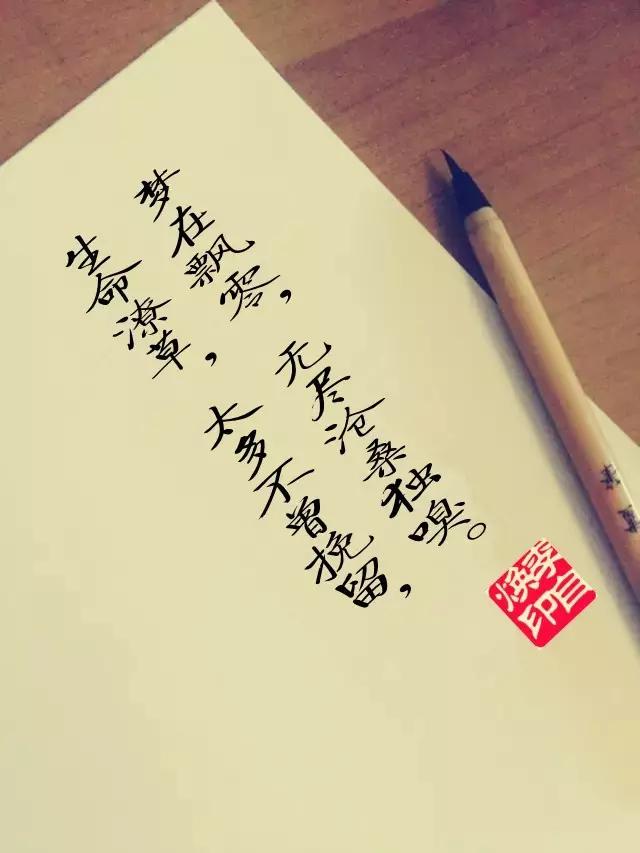 生命潦草，太多不曾挽留，
梦在飘零，无尽沧桑独嗅。
李自
焕印